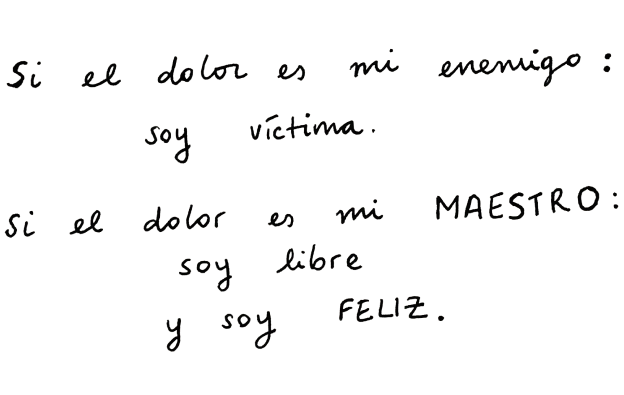 Si el dolor es mi enemigo:
soy víctima.
Si el dolor es mi MAESTRO:
soy libre
y soy FELIZ.